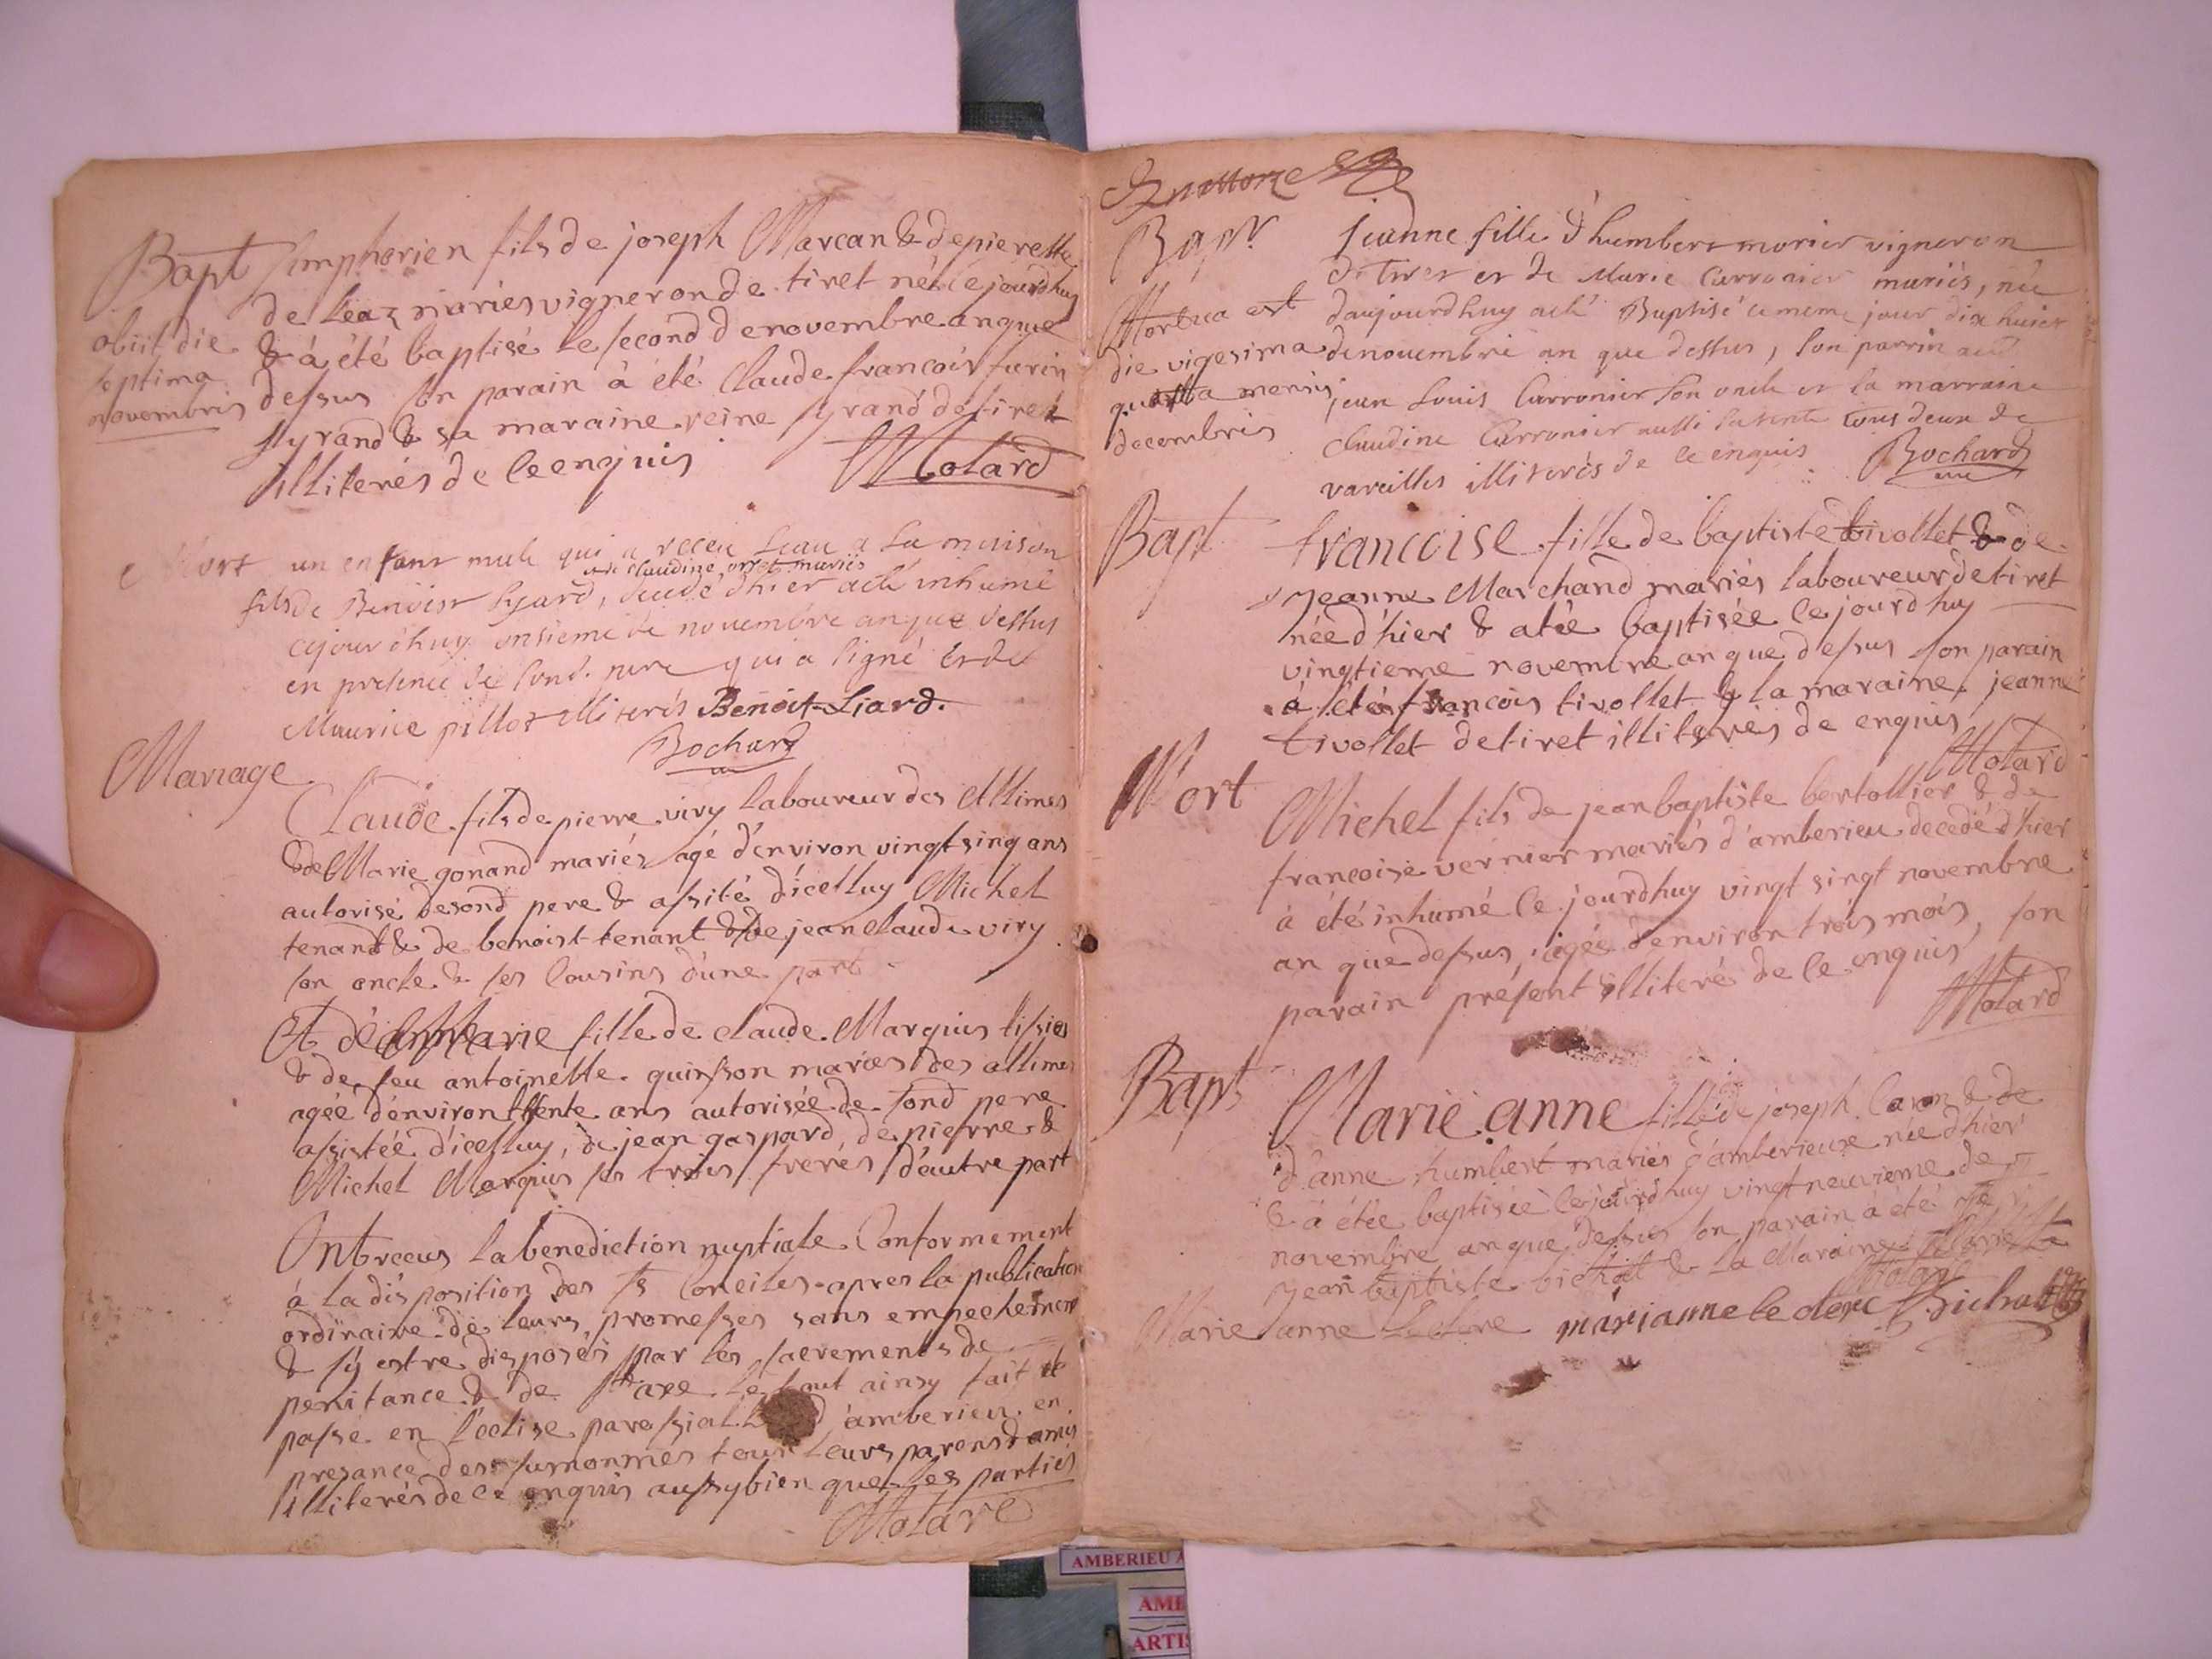 Bapt Simphorien fils de joseph Marcan & de pierrette
de leaz mariés vigneron de tiret né ce jourdhuy
& à été baptisé le second de novembre an que
dessus son parain à été Claude francois furin
syrand & sa maraine reine syrand de tiret
illiterés de ce enquis Molard
obiit die
septima
novembris
Mort un enfant male qui a receu leau a la maison
& de claudine orset mariés
fils de Benoist Lyard, decedé dhier a eté inhumé
cejourdhuy onsieme de novembre an que dessus
en presence de sond. pere qui a signé et de
Maurice pillot illiterés Benoit Liard.
Bochard
Mariage
Claude fils de pierre viry laboureur des Allimes
& de Marie gonand mariés agé d'environ vingt sinq ans
autorisé de sond pere & assité d'icelluy Michel
tenand & de benoist tenant & de jean claude viry
son oncle & ses cousins d'une part
Et Marie fille de claude Marquis tissier
& de feu antoinette quinson mariés des allimes
agée d'environ trente ans autorisée de sond pere
assistée d'icelluy, de jean gaspard, de pierre &
Michel Marquis ses trois freres d'autre part
Ont receus la benediction nuptiale Conformement
à la disposition des Sts Conciles apres la publication
ordinaire de leurs promesses sans empechement
& s'y estre disposés par les sacrements de
penitance & de le tout ainsy fait et
passé en l'eclise parossialle d'amberieu en
presance des surnommés tous leurs parens & amis
illiterés de ce enquis aussy bien que les parties
Molard
Quattorze
Bapt Jeanne fille d'humbert morier vigneron
de Tiret et de Marie Carronier mariés, née
daujourdhuy a eté Baptisé le meme jour dix huict
de nouembre an que dessus, son parrin a eté
jean Louis Carronier son oncle et la marraine
claudine Carronier aussi sa tente tous deux de
vareilles illiterés de ce enquis Bochard
Mortua est
die vigesima
quarta mensis
decembris
Bapt francoise fille de baptiste tivollet & de
Jeanne Marchand mariés laboureur de tiret
née d'hier & a été baptisée ce jourdhuy
vingtieme novembre an que dessus son parain
à été francois tivollet & la maraine jeanne
tivollet de tiret illiterés de enquis
Molard
Mort
Michel fils de jean baptiste bertollier & de
francoise vernier mariés d'amberieu decedé d'hier
à été inhumé ce jourdhuy vingt singt novembre
an que dessus, agée d'environ trois mois, son
parain présent illiteré de ce enquis
Molard
Bapt
Marie anne fille de joseph Caron & de
d'anne humbert mariés d'amberieux née d'hier
& à étée baptisée ce jourdhuy vingt neuvieme de
novembre an que dessus son parain à été
Jean baptiste bichat & la Maraine
Molard
Marie anne leclerc marianne le clerc Bichat
AMBERIEU
AMB
ARTIS